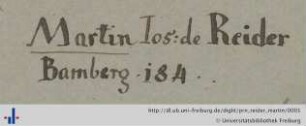 Martin Jos: de Reider
Bamberg. 184..
http://dl.ub.uni-freiburg.de/diglit/pre_reider_martin/0001
© Universitätsbibliothek Freiburg